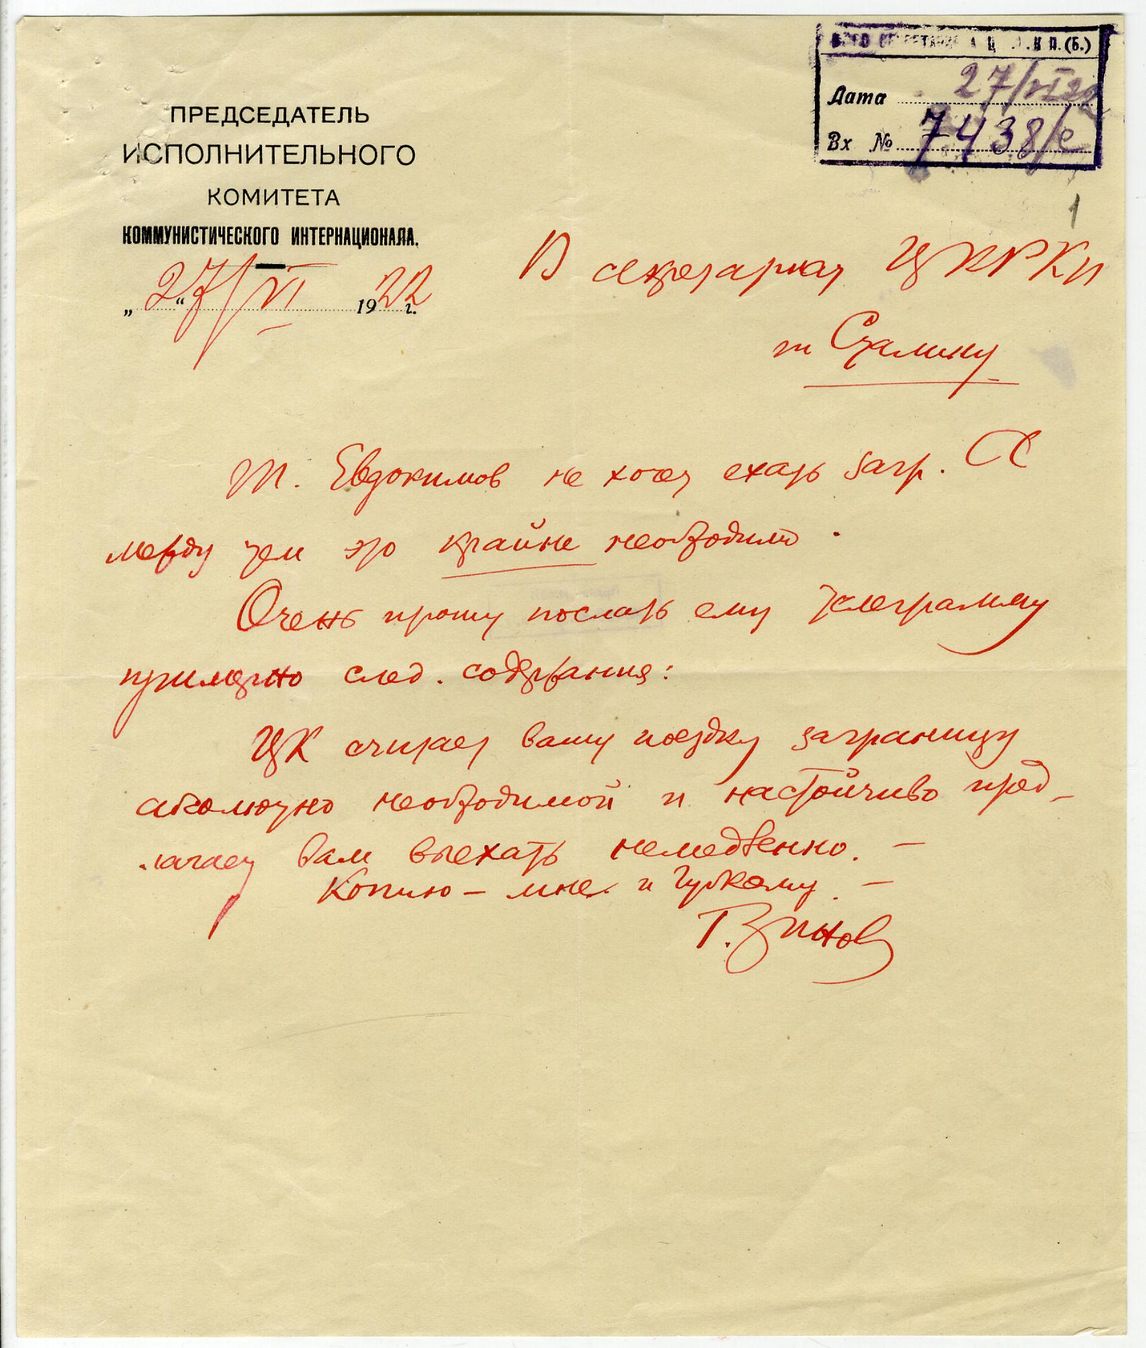 ПРЕДСЕДАТЕЛЬ
ИСПОЛНИТЕЛЬНОГО
КОМИТЕТА
КОММУНИСТИЧЕСКОГО ИНТЕРНАЦИОНАЛА.
„27“/VI 1922 г.
Ц Р.К.П.(Б.)
Дата 27/VI 22
Вх № 7438/с
1
В секретариат ЦК РКП
т Сталину
Т. Евдокимов не хочет ехать загр. А
между тем это крайне необходимо.
Очень прошу послать ему телеграмму
примерно след. содержания:
ЦК считает вашу поездку заграницу
абсолютно необходимой и настойчиво пред-
лагает вам выехать немедленно. —
Копию — мне и —
Г. Зинов